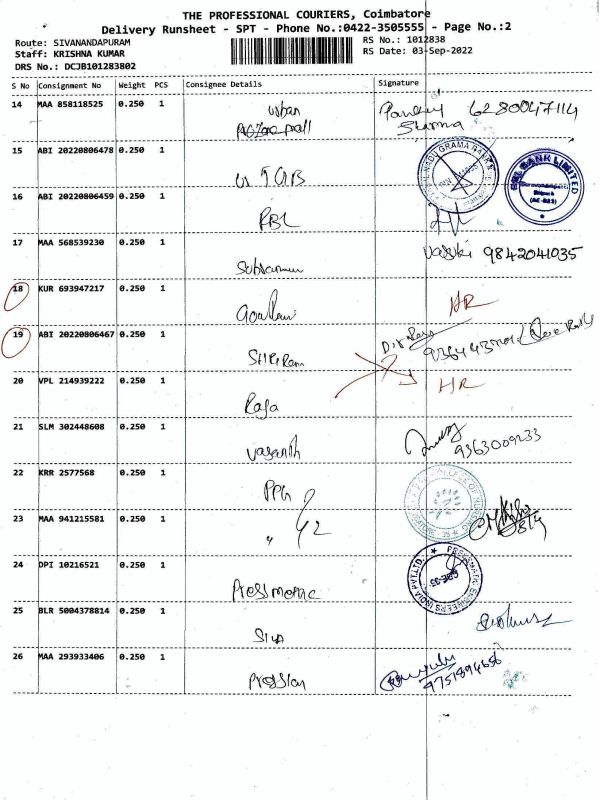 THE PROFESSIONAL COURIERS, Coimbatore
Delivery Runsheet - SPT - Phone No.:0422-3505555 - Page No.:2
Route: SIVANANDAPURAM
RS No.: 1012838
Staff: KRISHNA KUMAR
RS Date: 03-Sep-2022
DRS No.: DCJB101283802
S No Consignment No Weight PCS Consignee Details Signature
14 MAA 858118525 0.250 1 Pandey 6280047114
Sharma
15 ABI 20220806478 0.250 1
16 ABI 20220806459 0.250 1 RBL
RBL BANK LIMITED
17 MAA 568539230 0.250 1 Vasuki 9842041035
18 KUR 693947217 0.250 1 HR
19 ABI 20220806467 0.250 1 Sri Ram
20 VPL 214939222 0.250 1 Raja HR
21 SLM 302448608 0.250 1 Vasanth 9363009233
22 KRR 2577568 0.250 1 PPG
23 MAA 941215581 0.250 1 " 42
24 DPI 10216521 0.250 1 Pressmatic
PRESSMATIC ENGINEERS INDIA PVT.LTD.
25 BLR 5004378814 0.250 1 Siva
26 MAA 293933406 0.250 1 9751894656